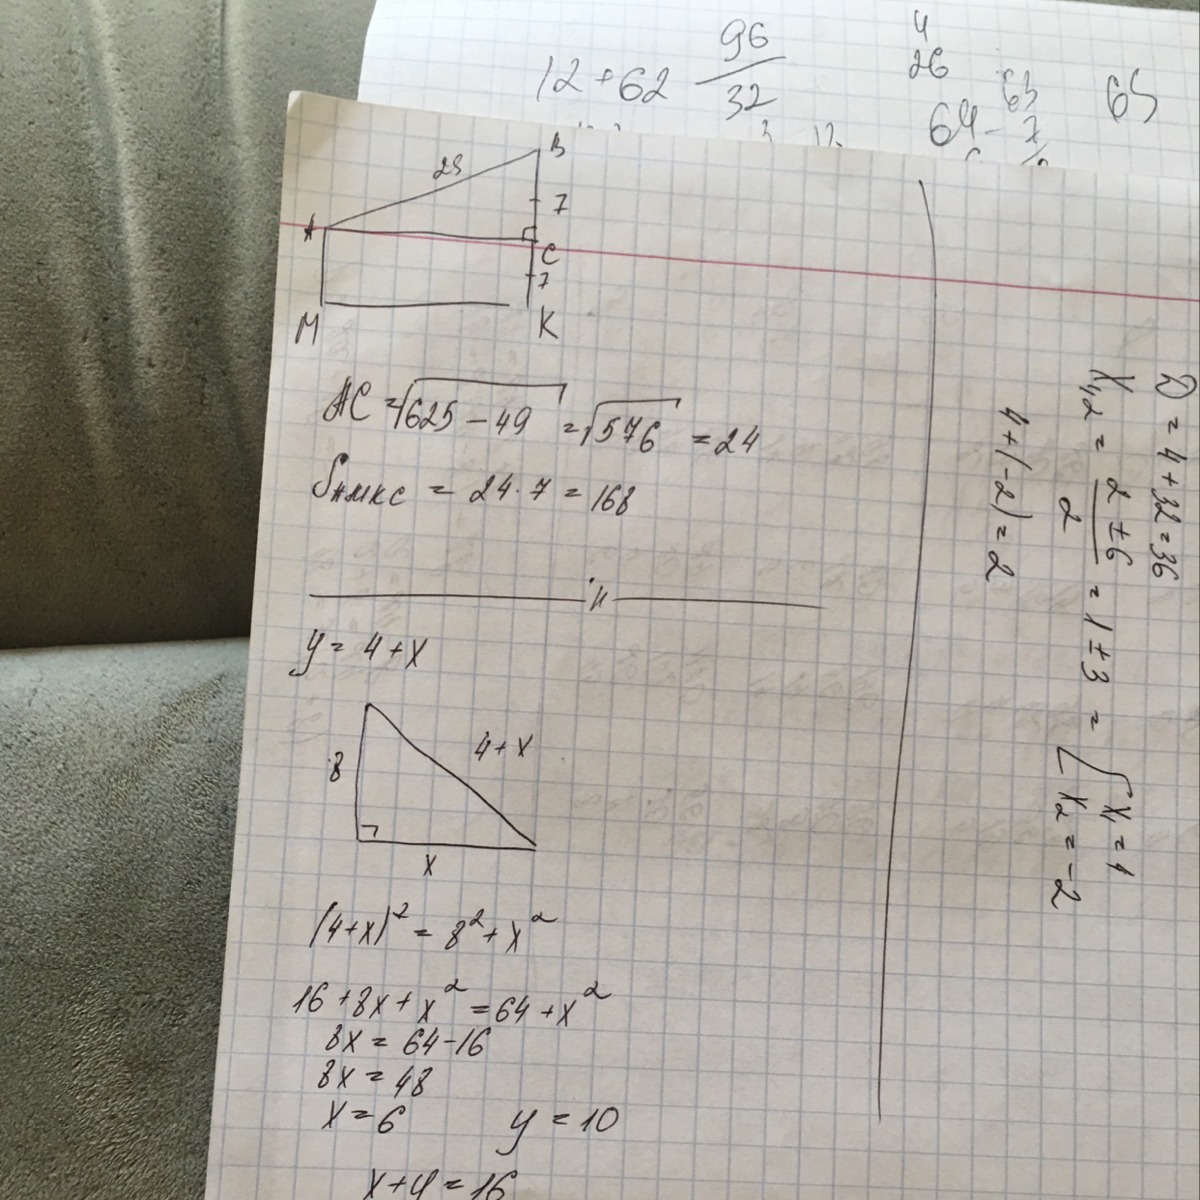 12 + 62 96/32 4
26
64 - 63 65
7
B
25
7
A
C
7
M K
AC = √625 - 49 = √576 = 24
Sамкс = 24 · 7 = 168
y = 4 + x
8
4 + x
x
(4+x)² = 8² + x²
16 + 8x + x² = 64 + x²
8x = 64 - 16
8x = 48
x = 6 y = 10
x + y = 16
D = 4 + 32 = 36
x₁,₂ = (2 ± 6)/2 = 1 ± 3 = [x₁ = 4
x₂ = -2
4 + (-2) = 2